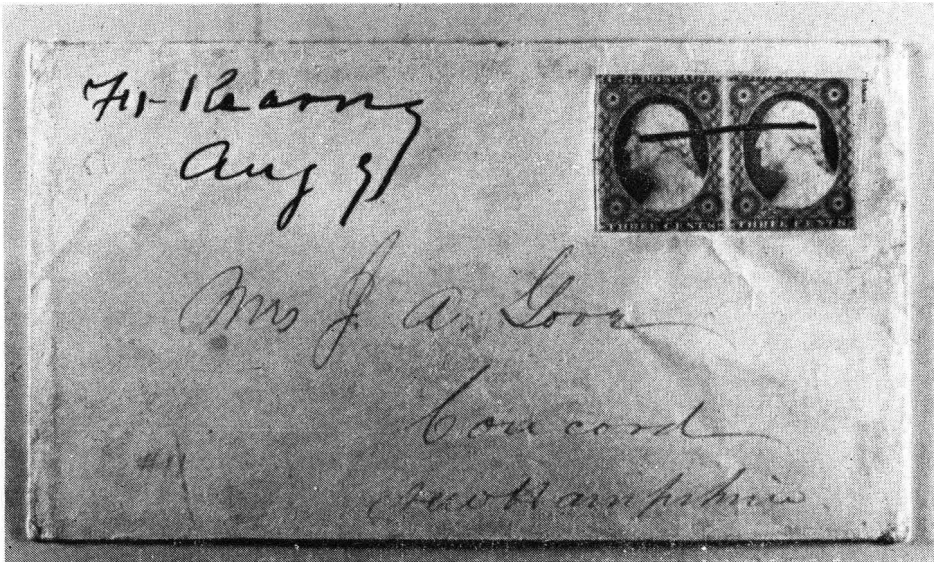 Ft. Kearny
Aug 9
THREE CENTS THREE CENTS
Mrs J. A. Gove
Concord
New Hampshire
#11